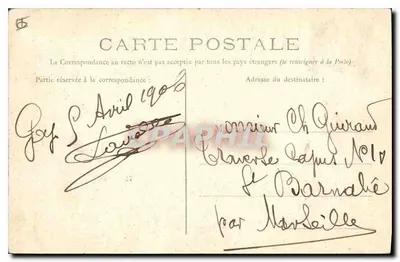 CARTE POSTALE
La Correspondance au recto n'est pas acceptée par tous les pays étrangers (se renseigner à la Poste)
Partie réservée à la correspondance :
Adresse du destinataire :
Gap 5 Avril 1906
Monsieur Ch Guiraud
Traverse Capus N 10
St Barnabé
par Marseille